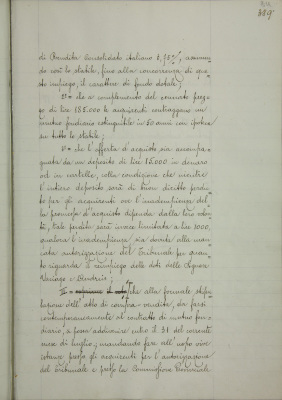 339
di Rendita Consolidato italiano 3,75%, assumen
do così lo stabile, fino alla concorrenza di que
sto impiego, il carattere di fondo dotale;
che a complemento del venduto prez
zo di lire 185.000 le acquirenti contraggano un
mutuo fondiario estinguibile in 50 anni con ipoteca
su tutto lo stabile;
che l'offerta d'acquisto sia accompa
gnata da un deposito di lire 15.000 in denaro
od in cartelle, colla condizione che mentre
l'intiero deposito sarà di pieno diritto perdu
to per gli acquirenti ove l'inadempienza del
la promessa d'acquisto dipenda dalla loro volon
tà, tale perdita sarà invece limitata a lire 1000,
qualora l'inadempienza sia dovuta alla man
cata autorizzazione del Tribunale per quan
to riguarda il reimpiego delle doti delle Signore
alla formale stipu
lazione dell'atto di compra-vendita, da farsi
contemporaneamente al contratto di mutuo fon
diario, si possa addivenire entro il 31 del corrente
mese di luglio; mandando fare all'uopo vive
istanze presso gli acquirenti per l'autorizzazione
del Tribunale e presso la Commissione Provinciale